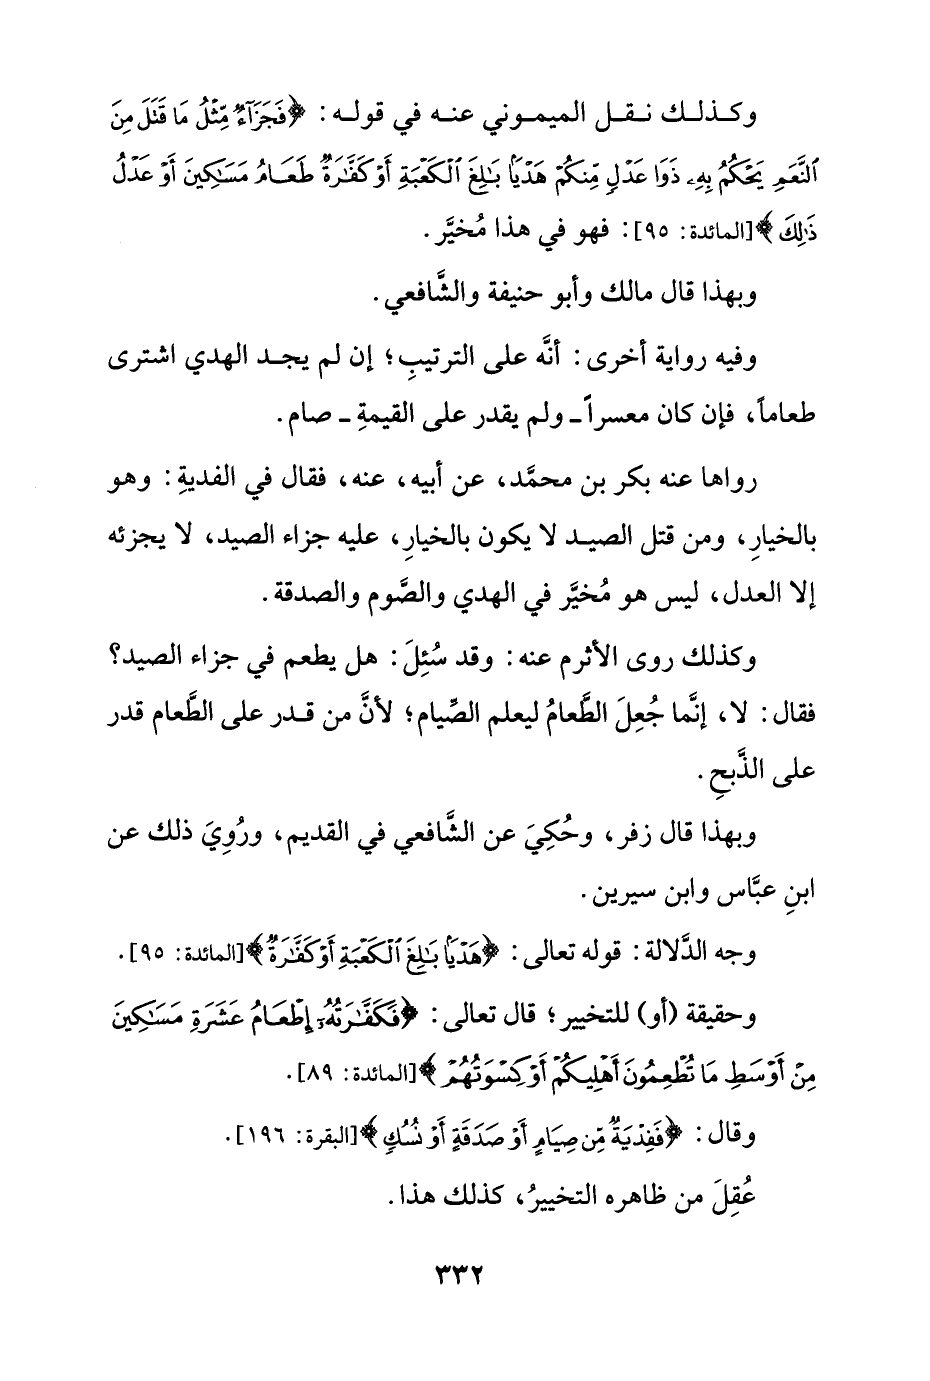 وكذلك نقل الميموني عنه في قوله: ﴿فَجَزَآءٌ مِّثْلُ مَا قَتَلَ مِنَ
ٱلنَّعَمِ يَحْكُمُ بِهِۦ ذَوَا عَدْلٍ مِّنكُمْ هَدْيًۢا بَٰلِغَ ٱلْكَعْبَةِ أَوْ كَفَّٰرَةٌ طَعَامُ مَسَٰكِينَ أَوْ عَدْلُ
ذَٰلِكَ﴾ [المائدة: ٩٥]: فهو في هذا مُخيَّر.
وبهذا قال مالك وأبو حنيفة والشَّافعي.
وفيه رواية أخرى: أنَّه على الترتيبِ؛ إن لم يجد الهدي اشترى
طعاماً، فإن كان معسراً ـ ولم يقدر على القيمةِ ـ صام.
رواها عنه بكر بن محمَّد، عن أبيه، عنه، فقال في الفديةِ: وهو
بالخيارِ، ومن قتل الصيد لا يكون بالخيارِ، عليه جزاء الصيد، لا يجزئه
إلا العدل، ليس هو مُخيَّر في الهدي والصَّوم والصدقة.
وكذلك روى الأثرم عنه: وقد سُئِلَ: هل يطعم في جزاء الصيد؟
فقال: لا، إنَّما جُعِلَ الطَّعامُ ليعلم الصِّيام؛ لأنَّ من قدر على الطَّعام قدر
على الذَّبحِ.
وبهذا قال زفر، وحُكِيَ عن الشَّافعي في القديم، ورُوِيَ ذلك عن
ابنِ عبَّاس وابن سيرين.
وجه الدَّلالة: قوله تعالى: ﴿هَدْيًۢا بَٰلِغَ ٱلْكَعْبَةِ أَوْ كَفَّٰرَةٌ﴾ [المائدة: ٩٥].
وحقيقة (أو) للتخيير؛ قال تعالى: ﴿فَكَفَّٰرَتُهُۥٓ إِطْعَامُ عَشَرَةِ مَسَٰكِينَ
مِنْ أَوْسَطِ مَا تُطْعِمُونَ أَهْلِيكُمْ أَوْ كِسْوَتُهُمْ﴾ [المائدة: ٨٩].
وقال: ﴿فَفِدْيَةٌ مِّن صِيَامٍ أَوْ صَدَقَةٍ أَوْ نُسُكٍ﴾ [البقرة: ١٩٦].
عُقِلَ من ظاهره التخييرُ، كذلك هذا.
٣٣٢